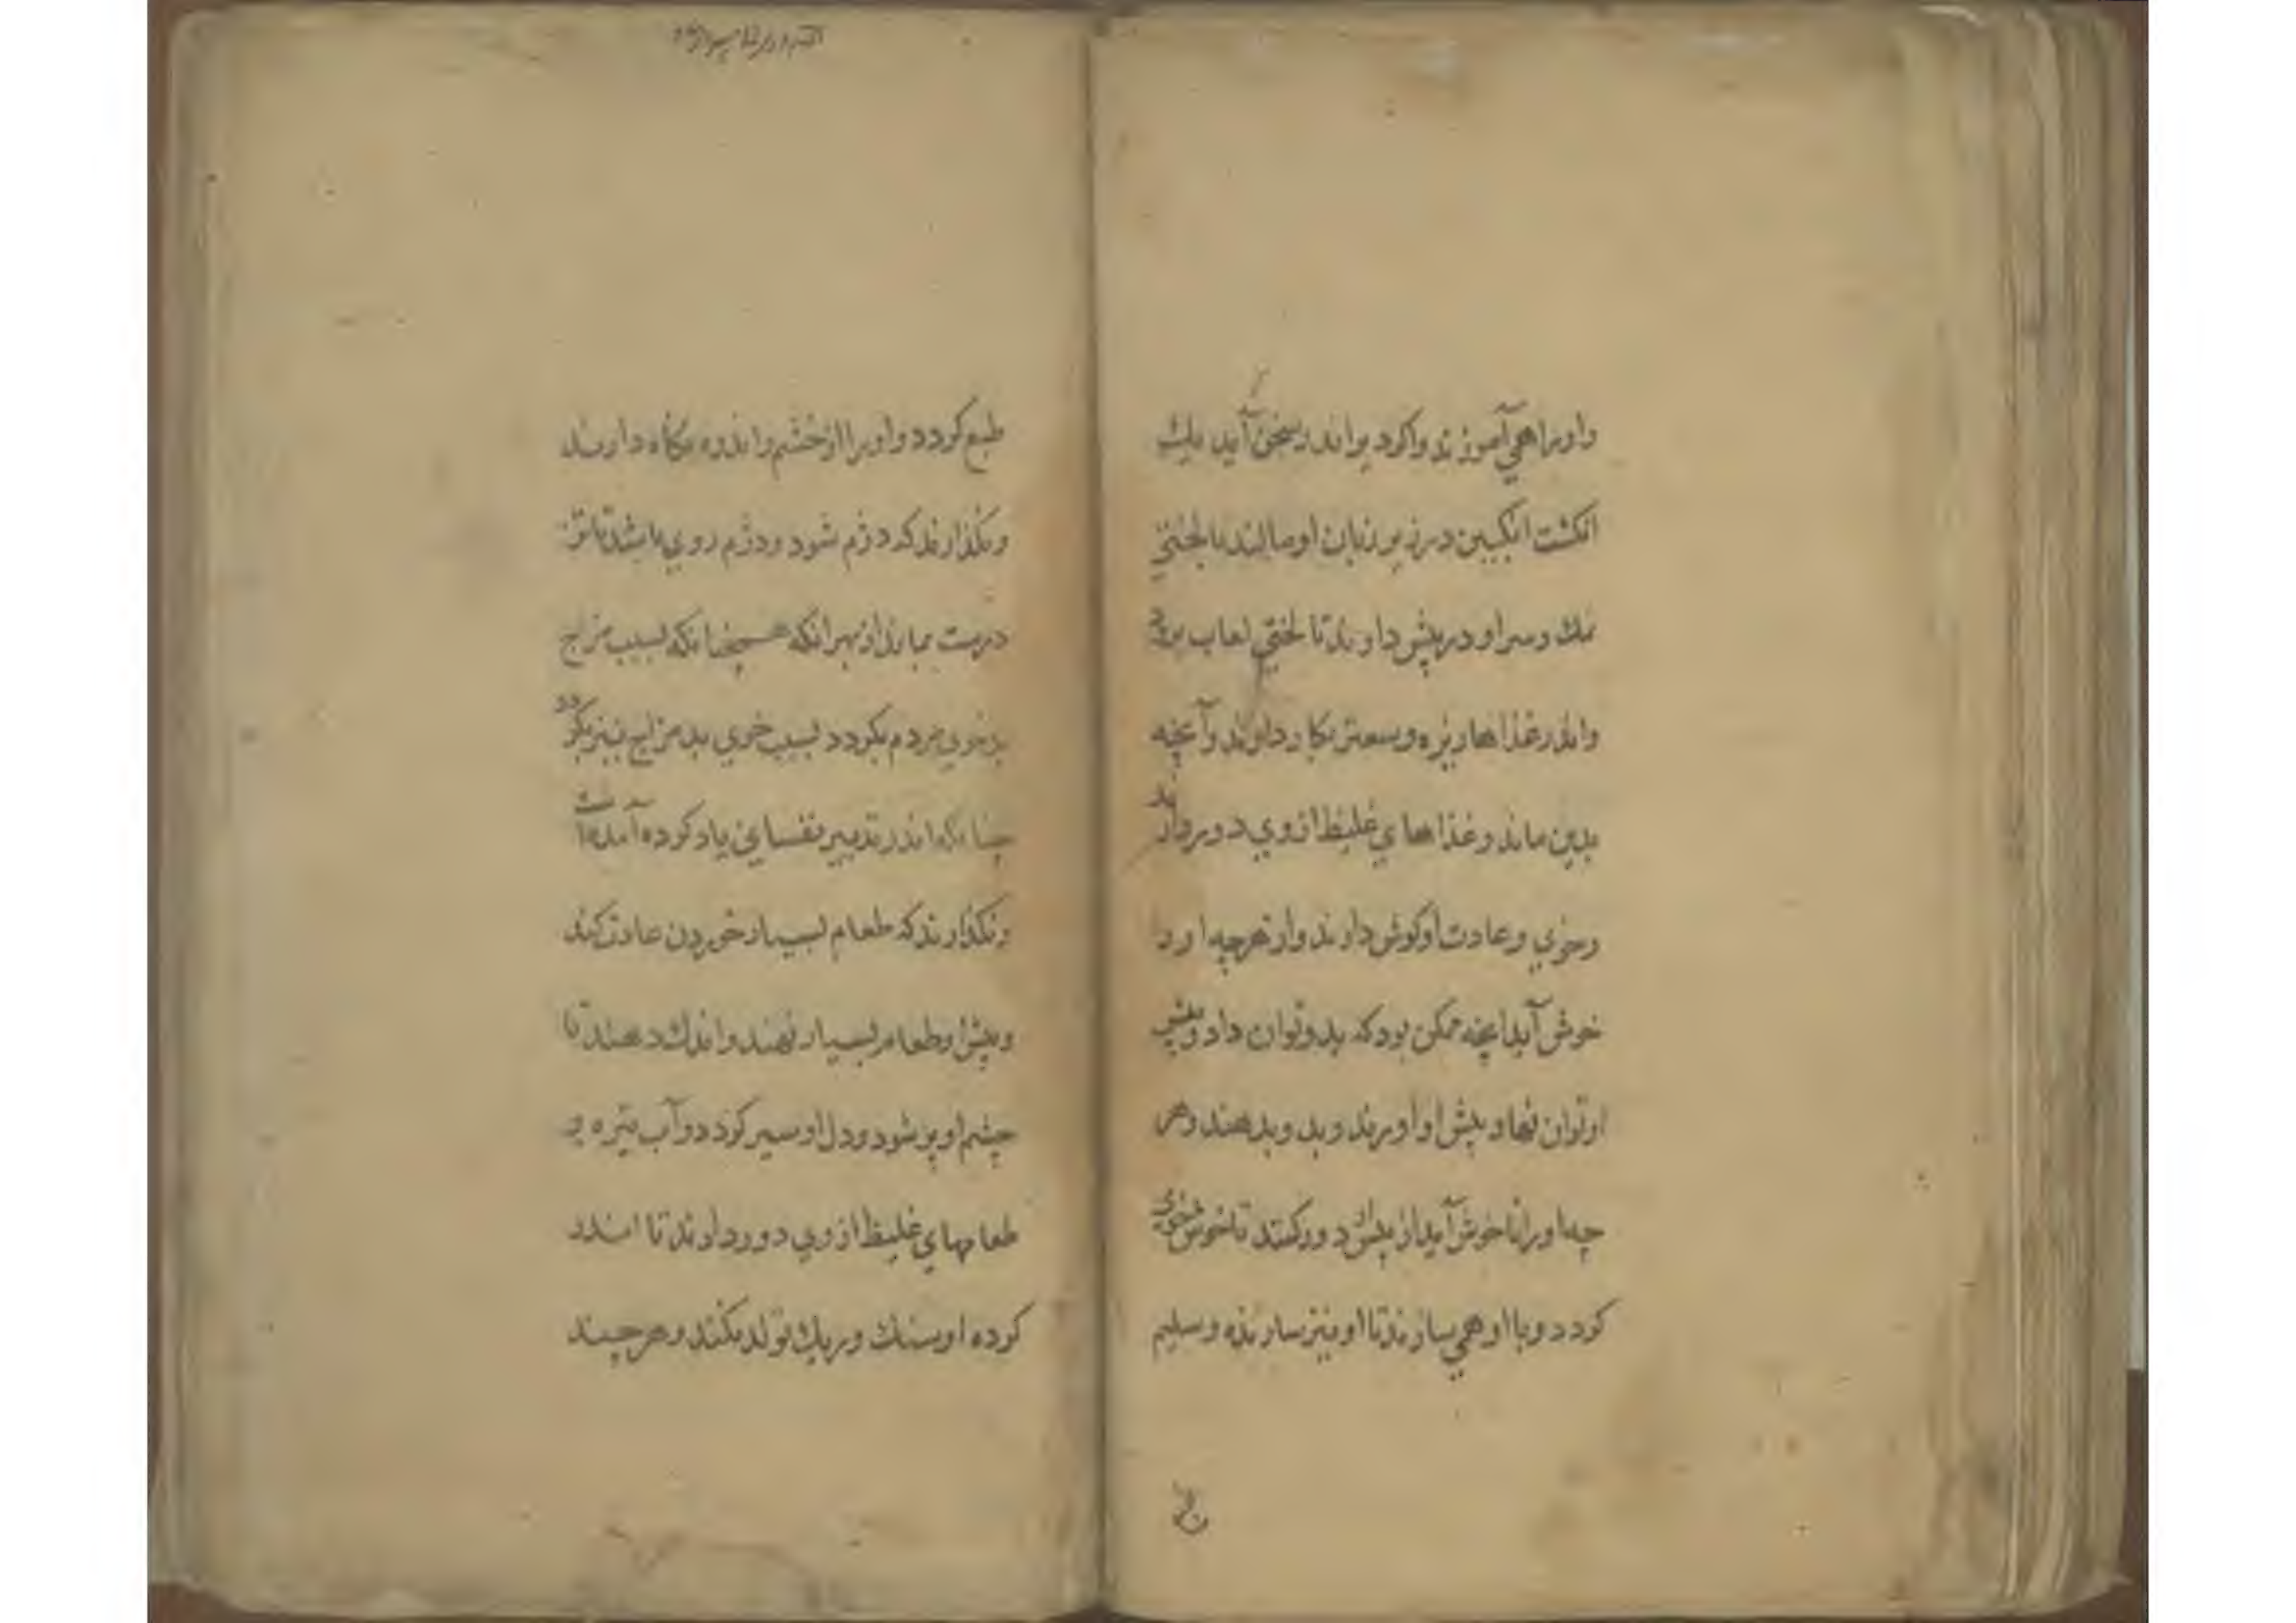 واورا همي آموزند واگر دیر اندر سخن آید یک
انکشت انکبین در زیر زبان او مالند با لختي
نمک وسر او در پیش دارند تا لختي لعاب برود
واندر غذاها زیره وسعتر بکار دارند وآنچه
بدین ماند وغذاهاي غلیظ ازوي دور دارند
وخوي وعادت او کوش دارند واز هرچه او را
خوش آید آنچه ممکن بود که بدو توان داد وپیش
او توان نهاد پیش او آورند وبدو بدهند وهر
چه او را ناخوش آید از پیش او دور کنند تا خوش خوي
کردد وبا او همي سازند تا او نیز سازنده وسلیم
طبع کردد واورا از خشم واندوه نکاه دارند
ونکذارند که دژم شود ودژم روي باشد تا تن
درست بماند از بهر انکه همچنانکه بسبب مزاج
بد خوي مردم بکردد بسبب خوي بد مزاج نیز بکردد
چنانکه اندر تدبیر نفساني یاد کرده آمده است
ونکذارند که طعام بسیار خوردن عادت کند
وپیش او طعام بسیار ننهند واندک دهند تا
چشم او پر شود ودل او سیر کردد وآب تیره و
طعامهاي غلیظ ازوي دور دارند تا اندر
کرده او سنک وریک تولد نکند وهرچند